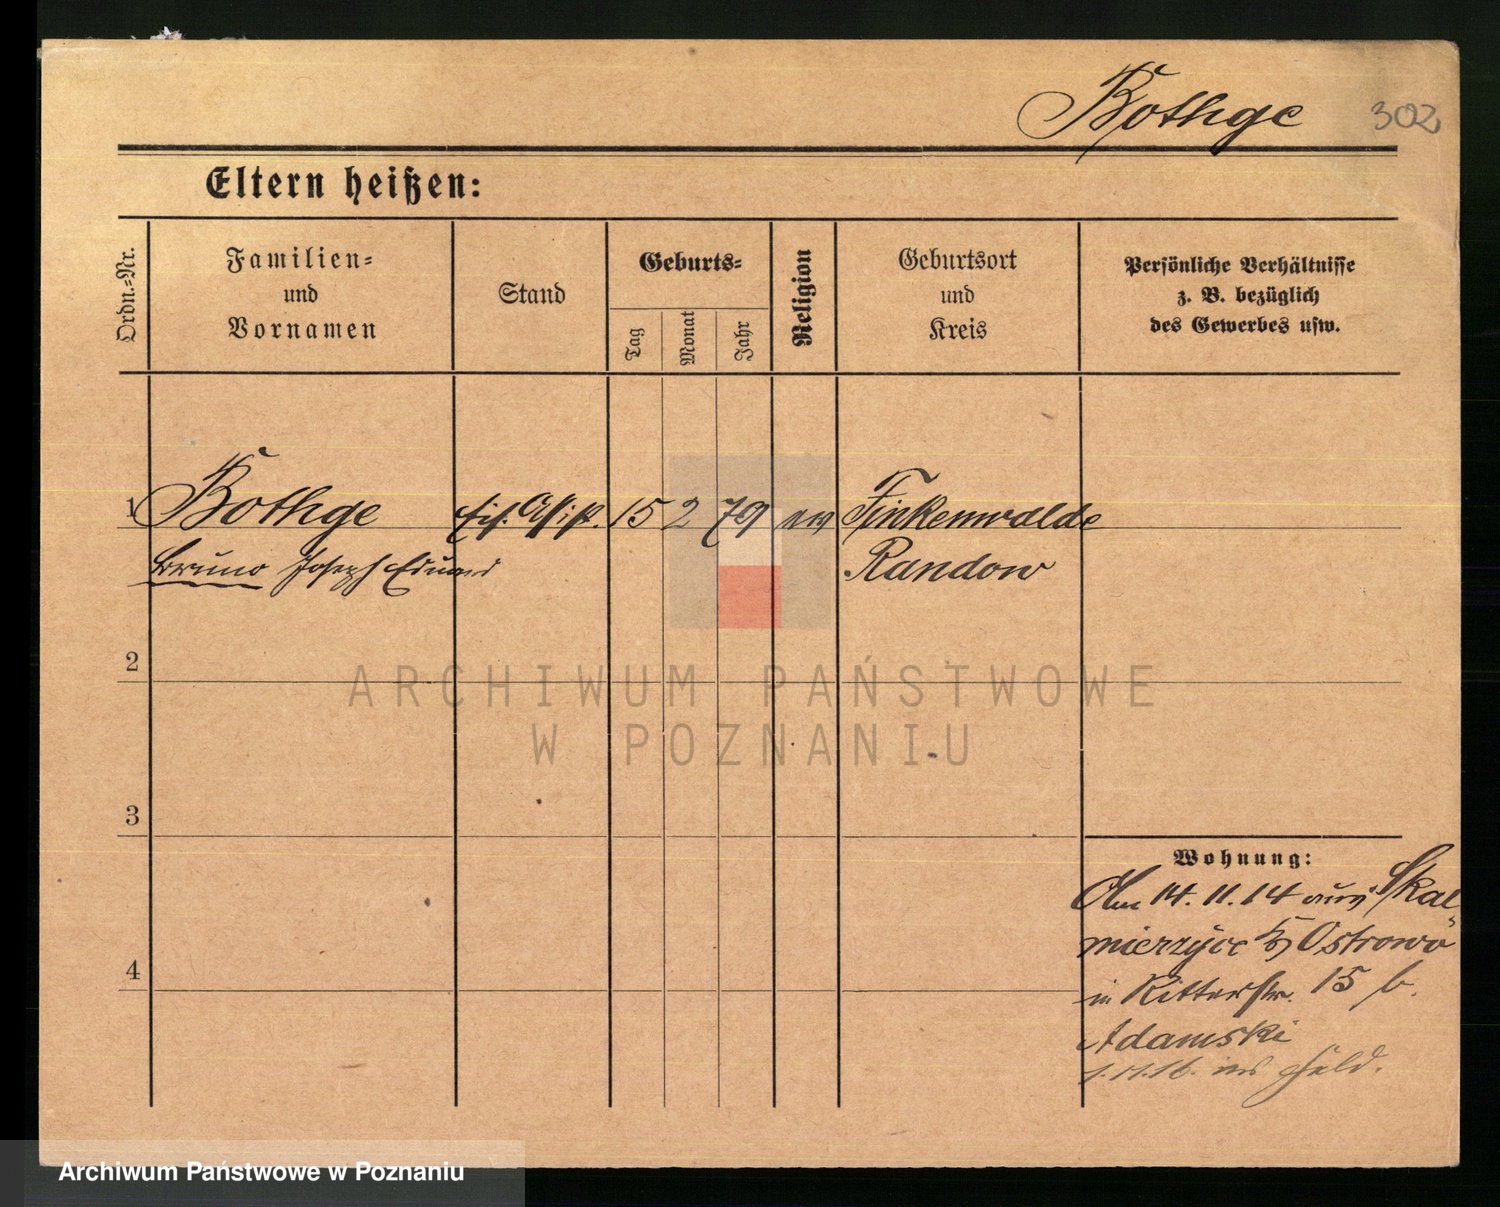 Bothge 302
Eltern heißen:
Ordn.-Nr.
Familien-
und
Vornamen
Stand
Geburts-
Tag
Monat
Jahr
Religion
Geburtsort
und
Kreis
Persönliche Verhältnisse
z. B. bezüglich
des Gewerbes usw.
1 Bothge Eis. Assist. 15 2 79 ev Finkenwalde
Bruno Joseph Eduard Randow
2
ARCHIWUM PAŃSTWOWE
W POZNANIU
3
Wohnung:
Am 14. 11. 14 aus Skal-
mierzyce Ostrowo
in Ritterstr. 15 b.
Adamski
4
1.11.16. ins Feld.
Archiwum Państwowe w Poznaniu